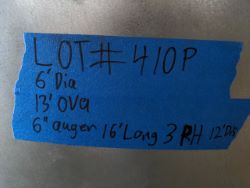 LOT# 410P
6' Dia
13' OVa
6" auger 16' Long 3 RH 12' Dis